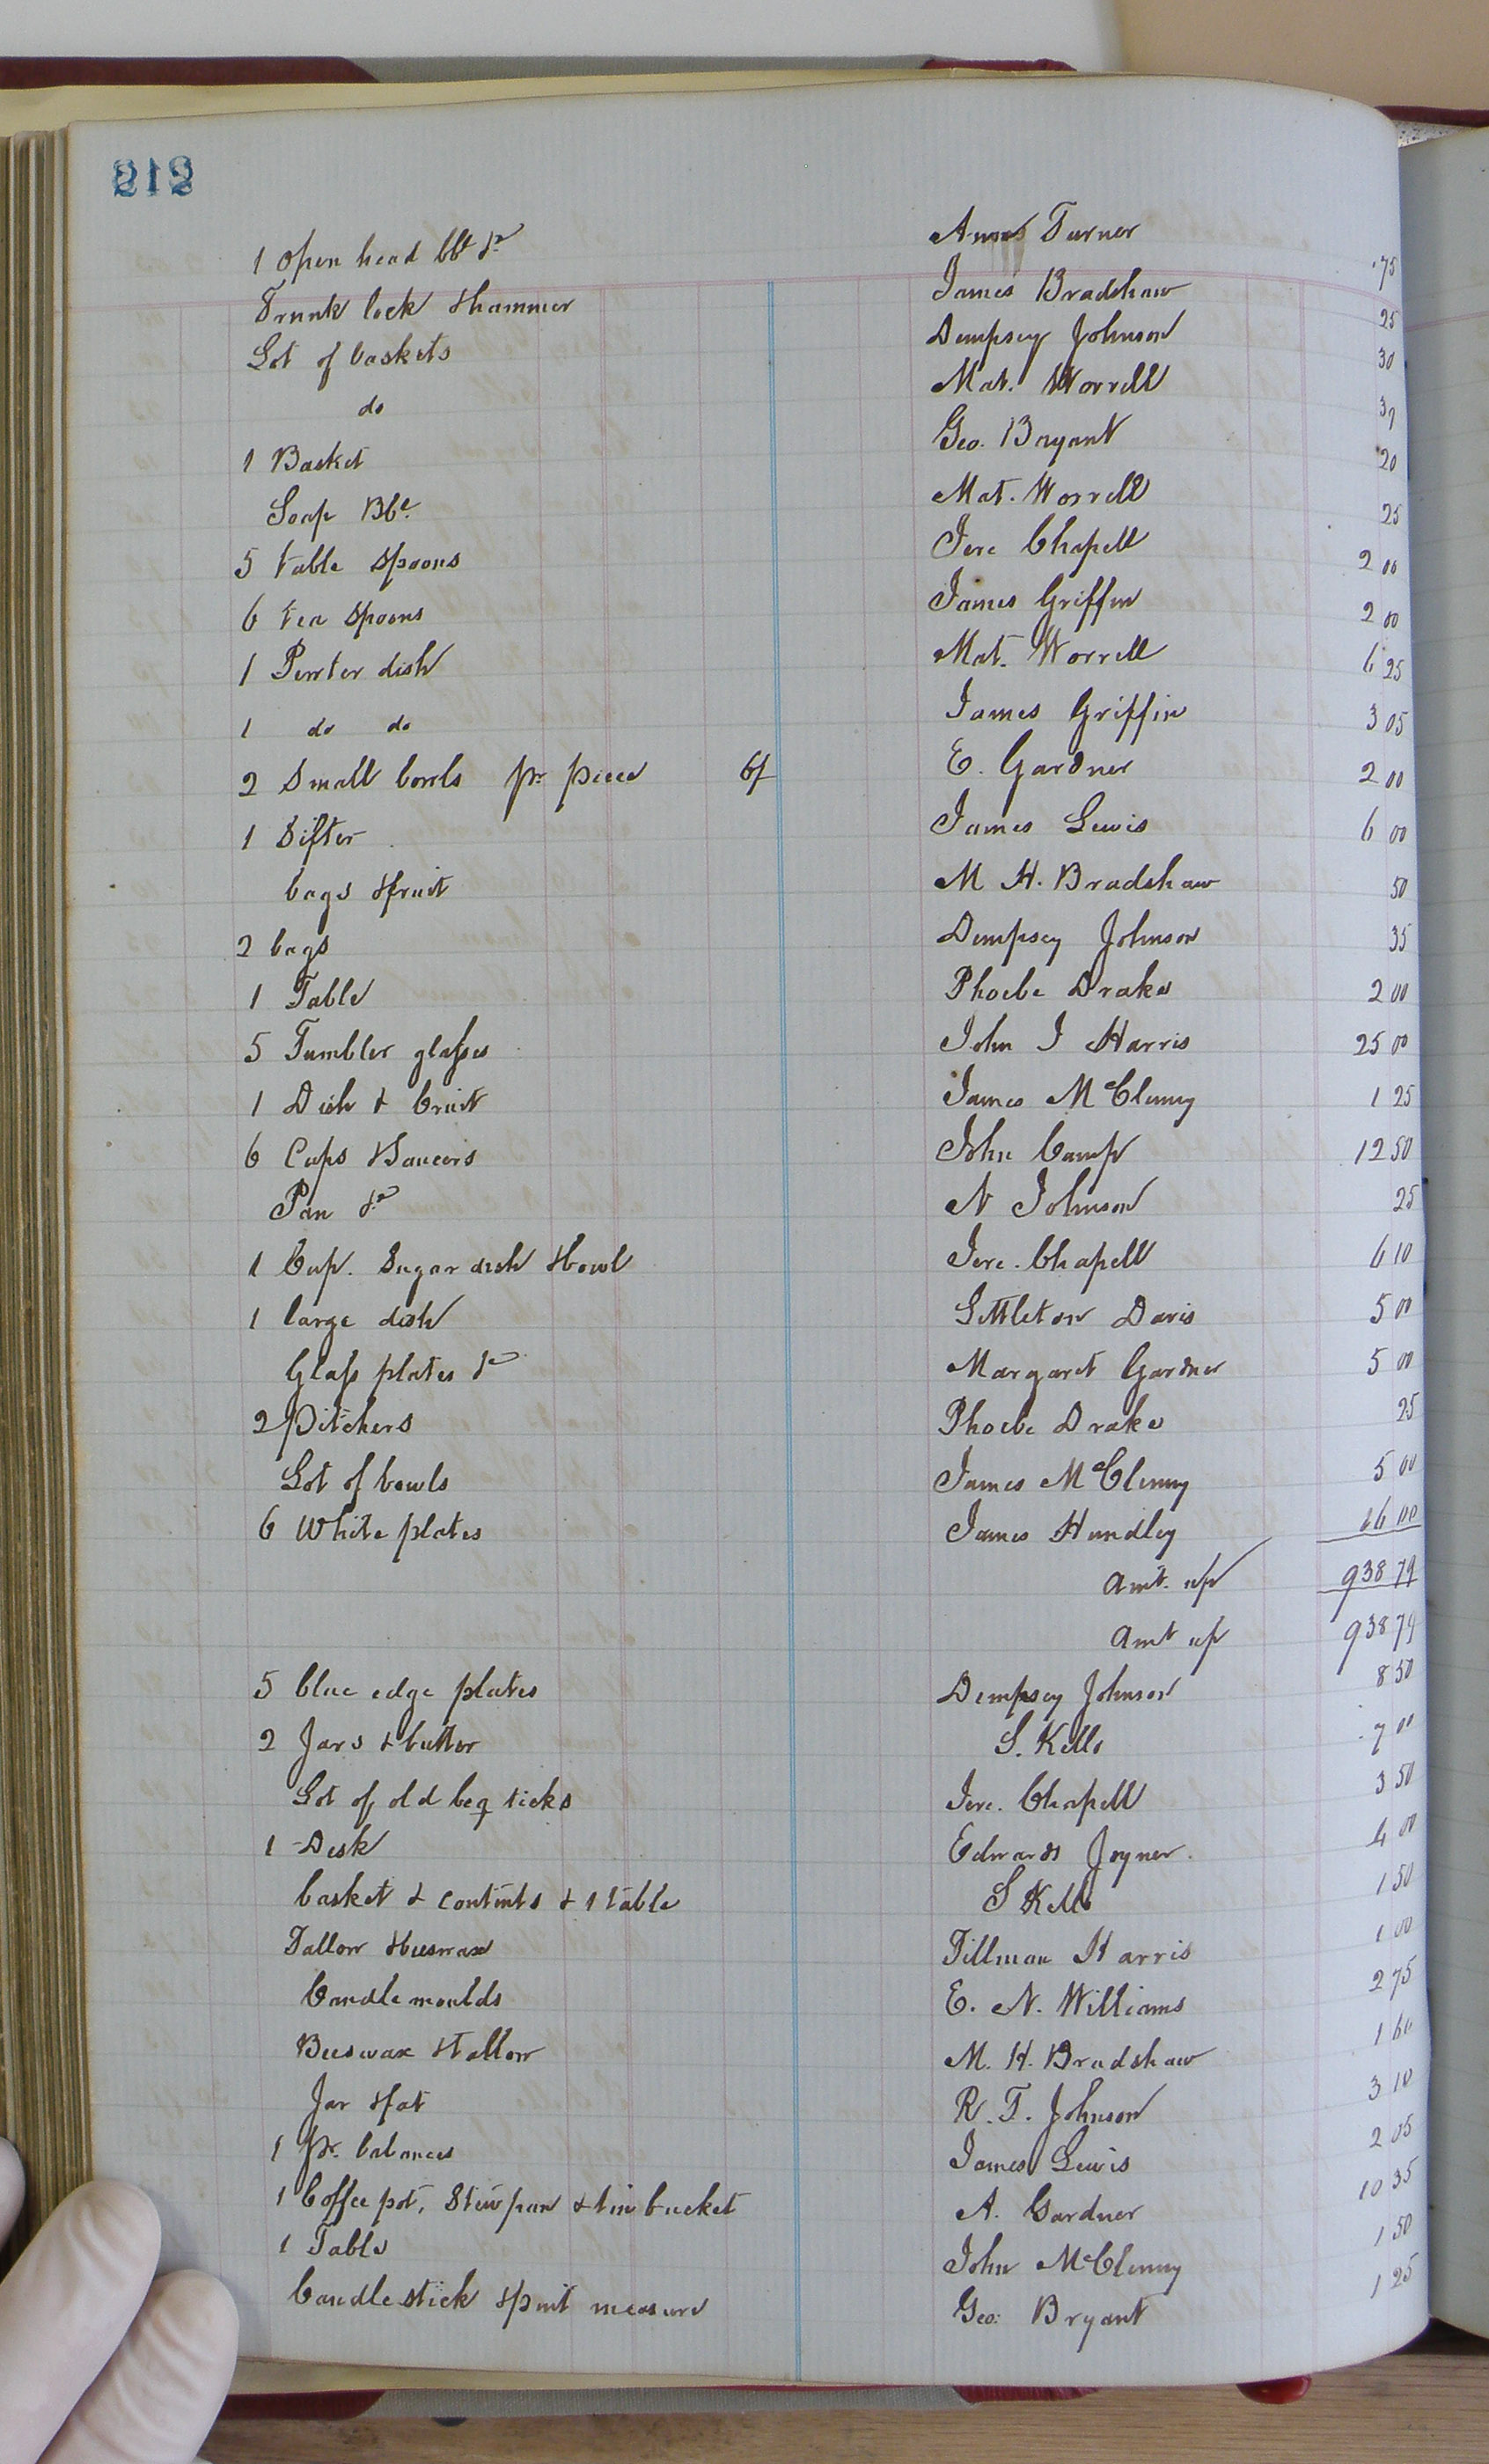 212
1 Open head bbl &c Amos Turner .75
Trunk lock & hammer James Bradshaw 25
Lot of baskets Dempsey Johnson 30
do Mat. Worrell 39
1 Basket Geo. Bryant 20
Soap Bbl. Mat. Worrell 25
5 table spoons Jere Chapell 2 00
6 tea spoons James Griffin 2 00
1 Pewter dish Mat. Worrell 6 25
1 do do James Griffin 3 05
2 Small bowls pr piece 6/ E. Gardner 2 00
1 Sifter James Lewis 6 00
bags & fruit M H. Bradshaw 50
2 bags Dempsey Johnson 35
1 Table Phoebe Drake 2 00
5 Tumbler glasses John J Harris 25 00
1 Dish & Cruit James McClenny 1 25
6 Cups & Saucers John Camp 12 50
Pan &c N Johnson 25
1 Cup. Sugar dish & bowl Jere. Chapell 6 10
1 large dish Littleton Davis 5 00
Glass plates &c Margaret Gardner 5 00
2 Pitchers Phoebe Drake 25
Lot of bowls James McClenny 5 00
6 White plates James Hundley 16 00
Amt. up 938 79
Amt up 938 79
5 blue edge plates Dempsey Johnson 8 50
2 Jars & butter S. Kello 7 00
Lot of old beg ticks Jere. Chapell 3 50
1 Desk Edwards Joyner. 4 00
basket & contents & 1 table S Kello 1 50
Tallow & beeswax Tillman Harris 1 00
Candle moulds E. N. Williams 2 75
Beeswax & tallow M. H. Bradshaw 1 60
Jar & fat R. T. Johnson 3 10
1 pr. balances James Lewis 2 05
1 Coffee pot, Stew pan & tin bucket A. Gardner 10 35
1 Table John McClenny 1 50
Candle stick & pint measure Geo: Bryant 1 25